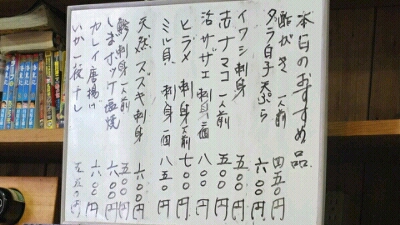 本日のおすすめ品
酢がき 一人前 四五〇円
タラ白子天ぷら 六〇〇円
イワシ刺身 五〇〇円
赤ナマコ一人前 五〇〇円
活サザエ刺身一個 八〇〇円
ヒラメ刺身一人前 七〇〇円
ミル貝刺身一個 八五〇円
天然スズキ刺身 六〇〇円
鯵刺身一人前 五〇〇円
しまホッケ塩焼 六〇〇円
カレイ唐揚げ 六〇〇円
いか一夜干し 五五〇円